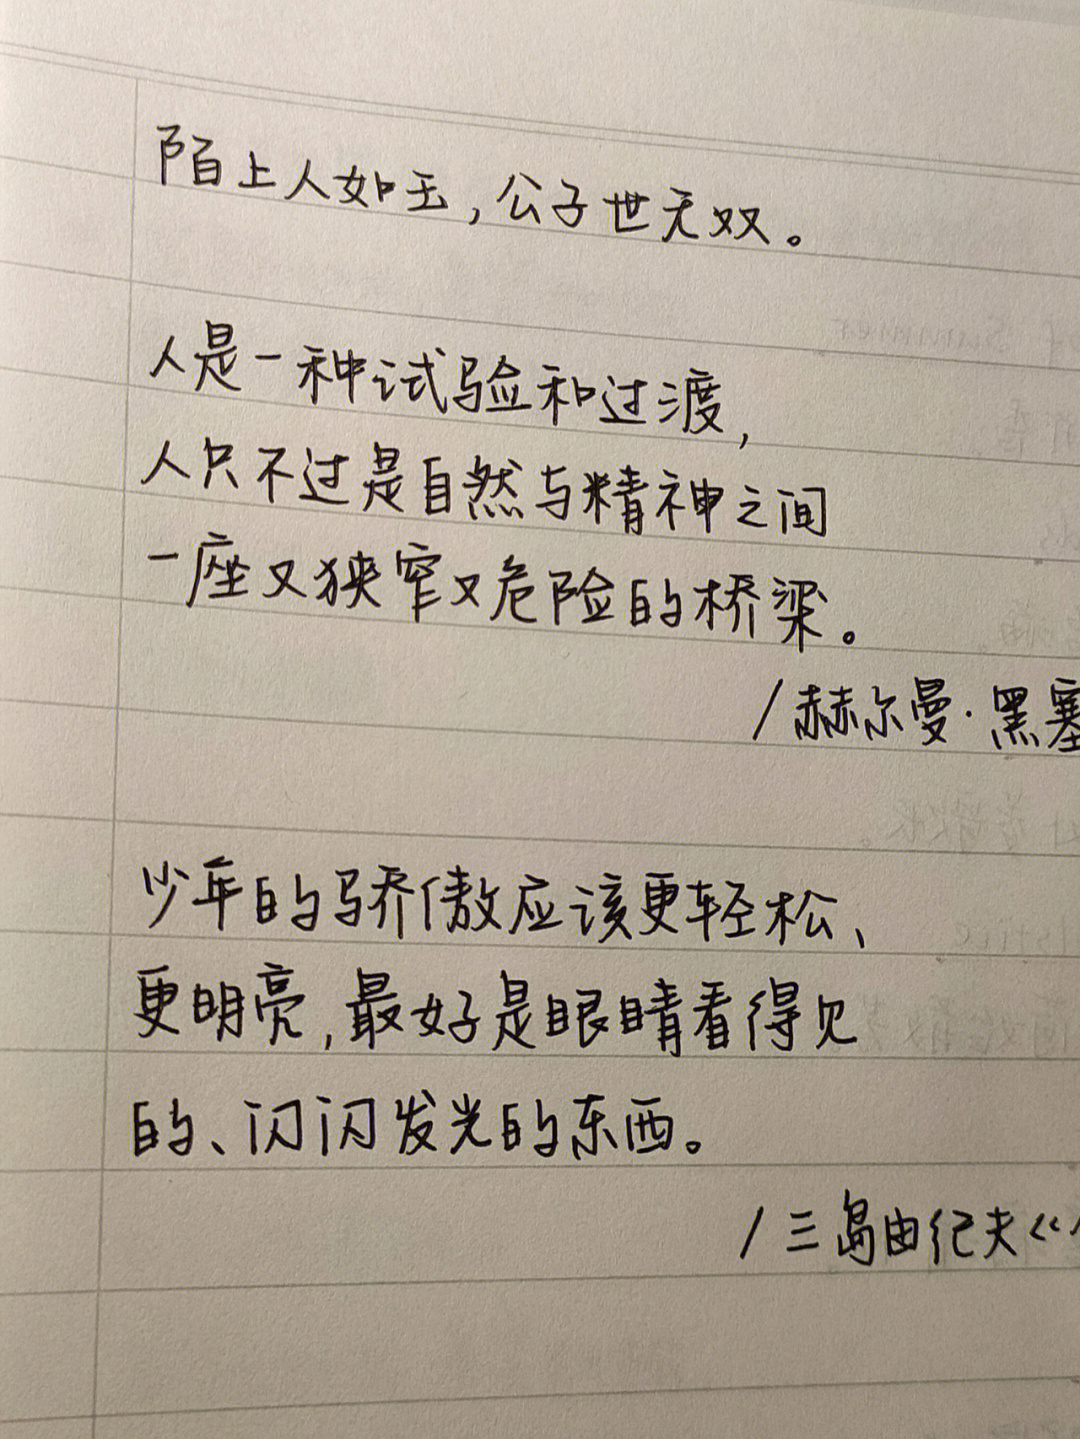 陌上人如玉，公子世无双。
人是一种试验和过渡，
人只不过是自然与精神之间
一座又狭窄又危险的桥梁。
/赫尔曼·黑塞
少年的骄傲应该更轻松、
更明亮，最好是眼睛看得见
的、闪闪发光的东西。
/三岛由纪夫《